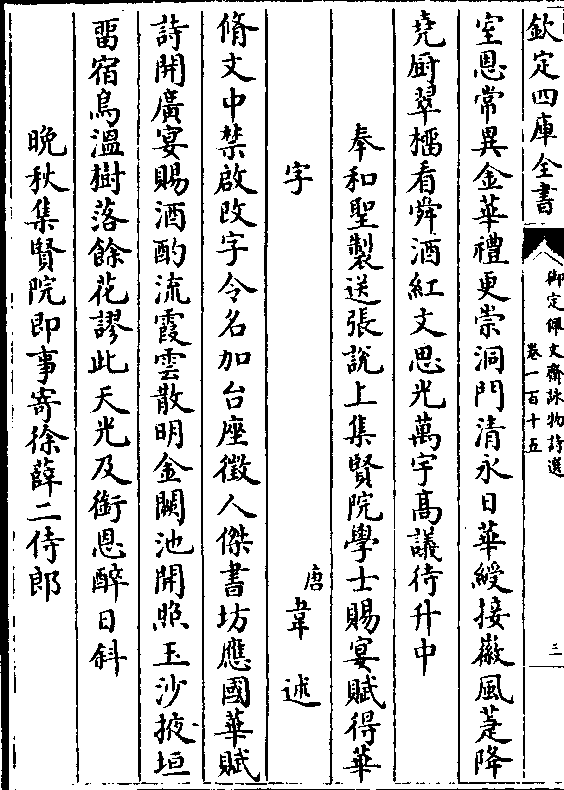 欽定四庫全書
御定佩文齋詠物詩選
卷一百十五
三
室恩常異金華禮更崇洞門清永日華綬接薇風蓂降
堯厨翠樽看舜酒紅文思光萬宇髙議待升中
奉和聖製送張說上集賢院學士賜宴賦得華
字
唐
韋述
脩文中禁啟改字令名加台座徵人傑書坊應國華賦
詩開廣宴賜酒酌流霞雲散明金闕池開照玉沙掖垣
畱宿鳥溫樹落餘花謬此天光及銜恩醉日斜
晩秋集賢院即事寄徐薛二侍郎